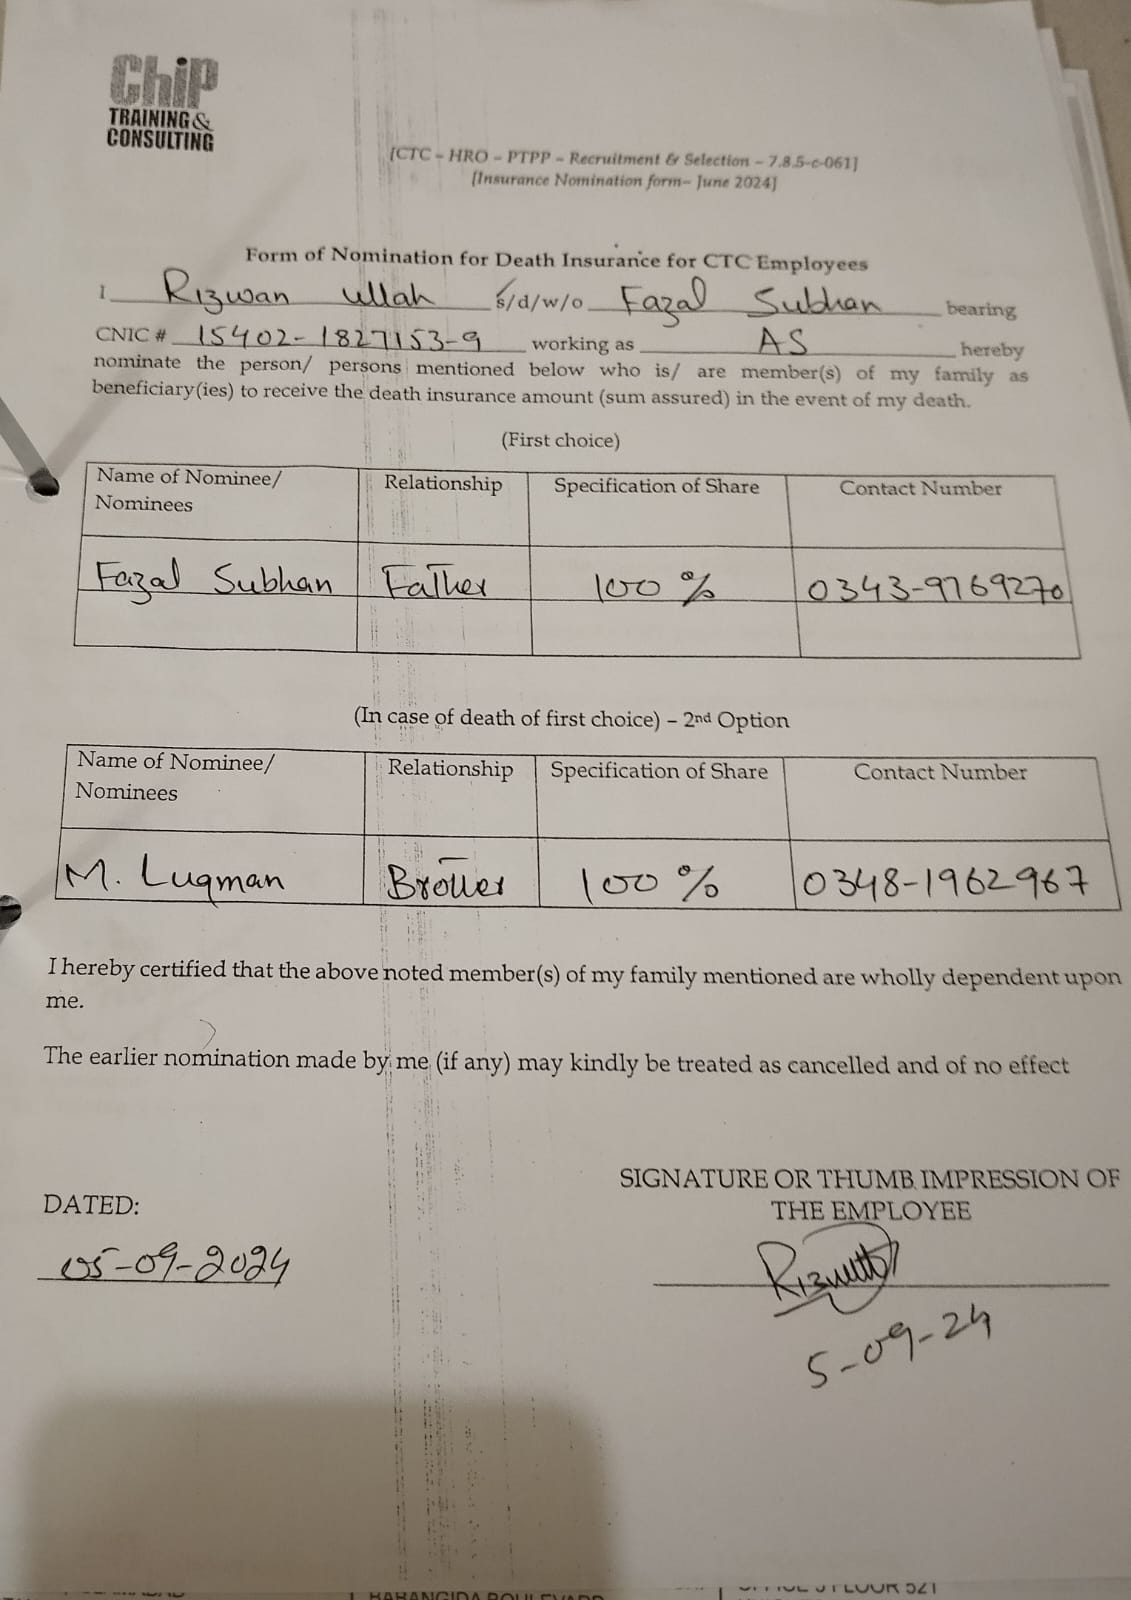 ChiP
TRAINING &
CONSULTING
[CTC – HRO – PTPP – Recruitment & Selection – 7.8.5-c-061]
[Insurance Nomination form– June 2024]
Form of Nomination for Death Insurance for CTC Employees
I Rizwan ullah s/d/w/o Fazal Subhan bearing
CNIC # 15402-1827153-9 working as AS hereby
nominate the person/ persons mentioned below who is/ are member(s) of my family as
beneficiary(ies) to receive the death insurance amount (sum assured) in the event of my death.
(First choice)
Name of Nominee/ Relationship Specification of Share Contact Number
Nominees
Fazal Subhan Father 100 % 0343-9769270
(In case of death of first choice) – 2nd Option
Name of Nominee/ Relationship Specification of Share Contact Number
Nominees
M. Luqman Brother 100 % 0348-1962967
I hereby certified that the above noted member(s) of my family mentioned are wholly dependent upon
me.
The earlier nomination made by me (if any) may kindly be treated as cancelled and of no effect
SIGNATURE OR THUMB IMPRESSION OF
DATED: THE EMPLOYEE
05-09-2024
5-09-24